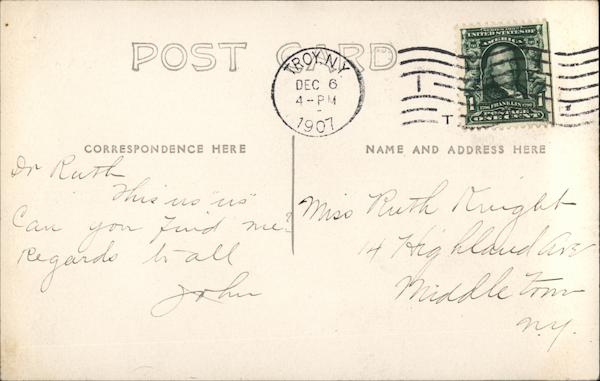 POST CARD
TROY N.Y.
DEC 6
4-PM
1907
SERIES 1902
UNITED STATES OF
AMERICA
FRANKLIN
1 POSTAGE 1
ONE CENT
T
CORRESPONDENCE HERE
NAME AND ADDRESS HERE
Dr Ruth
This is "us"
Can you find me?
Regards to all
John
Miss Ruth Knight
14 Highland Ave
Middletown
N.Y.